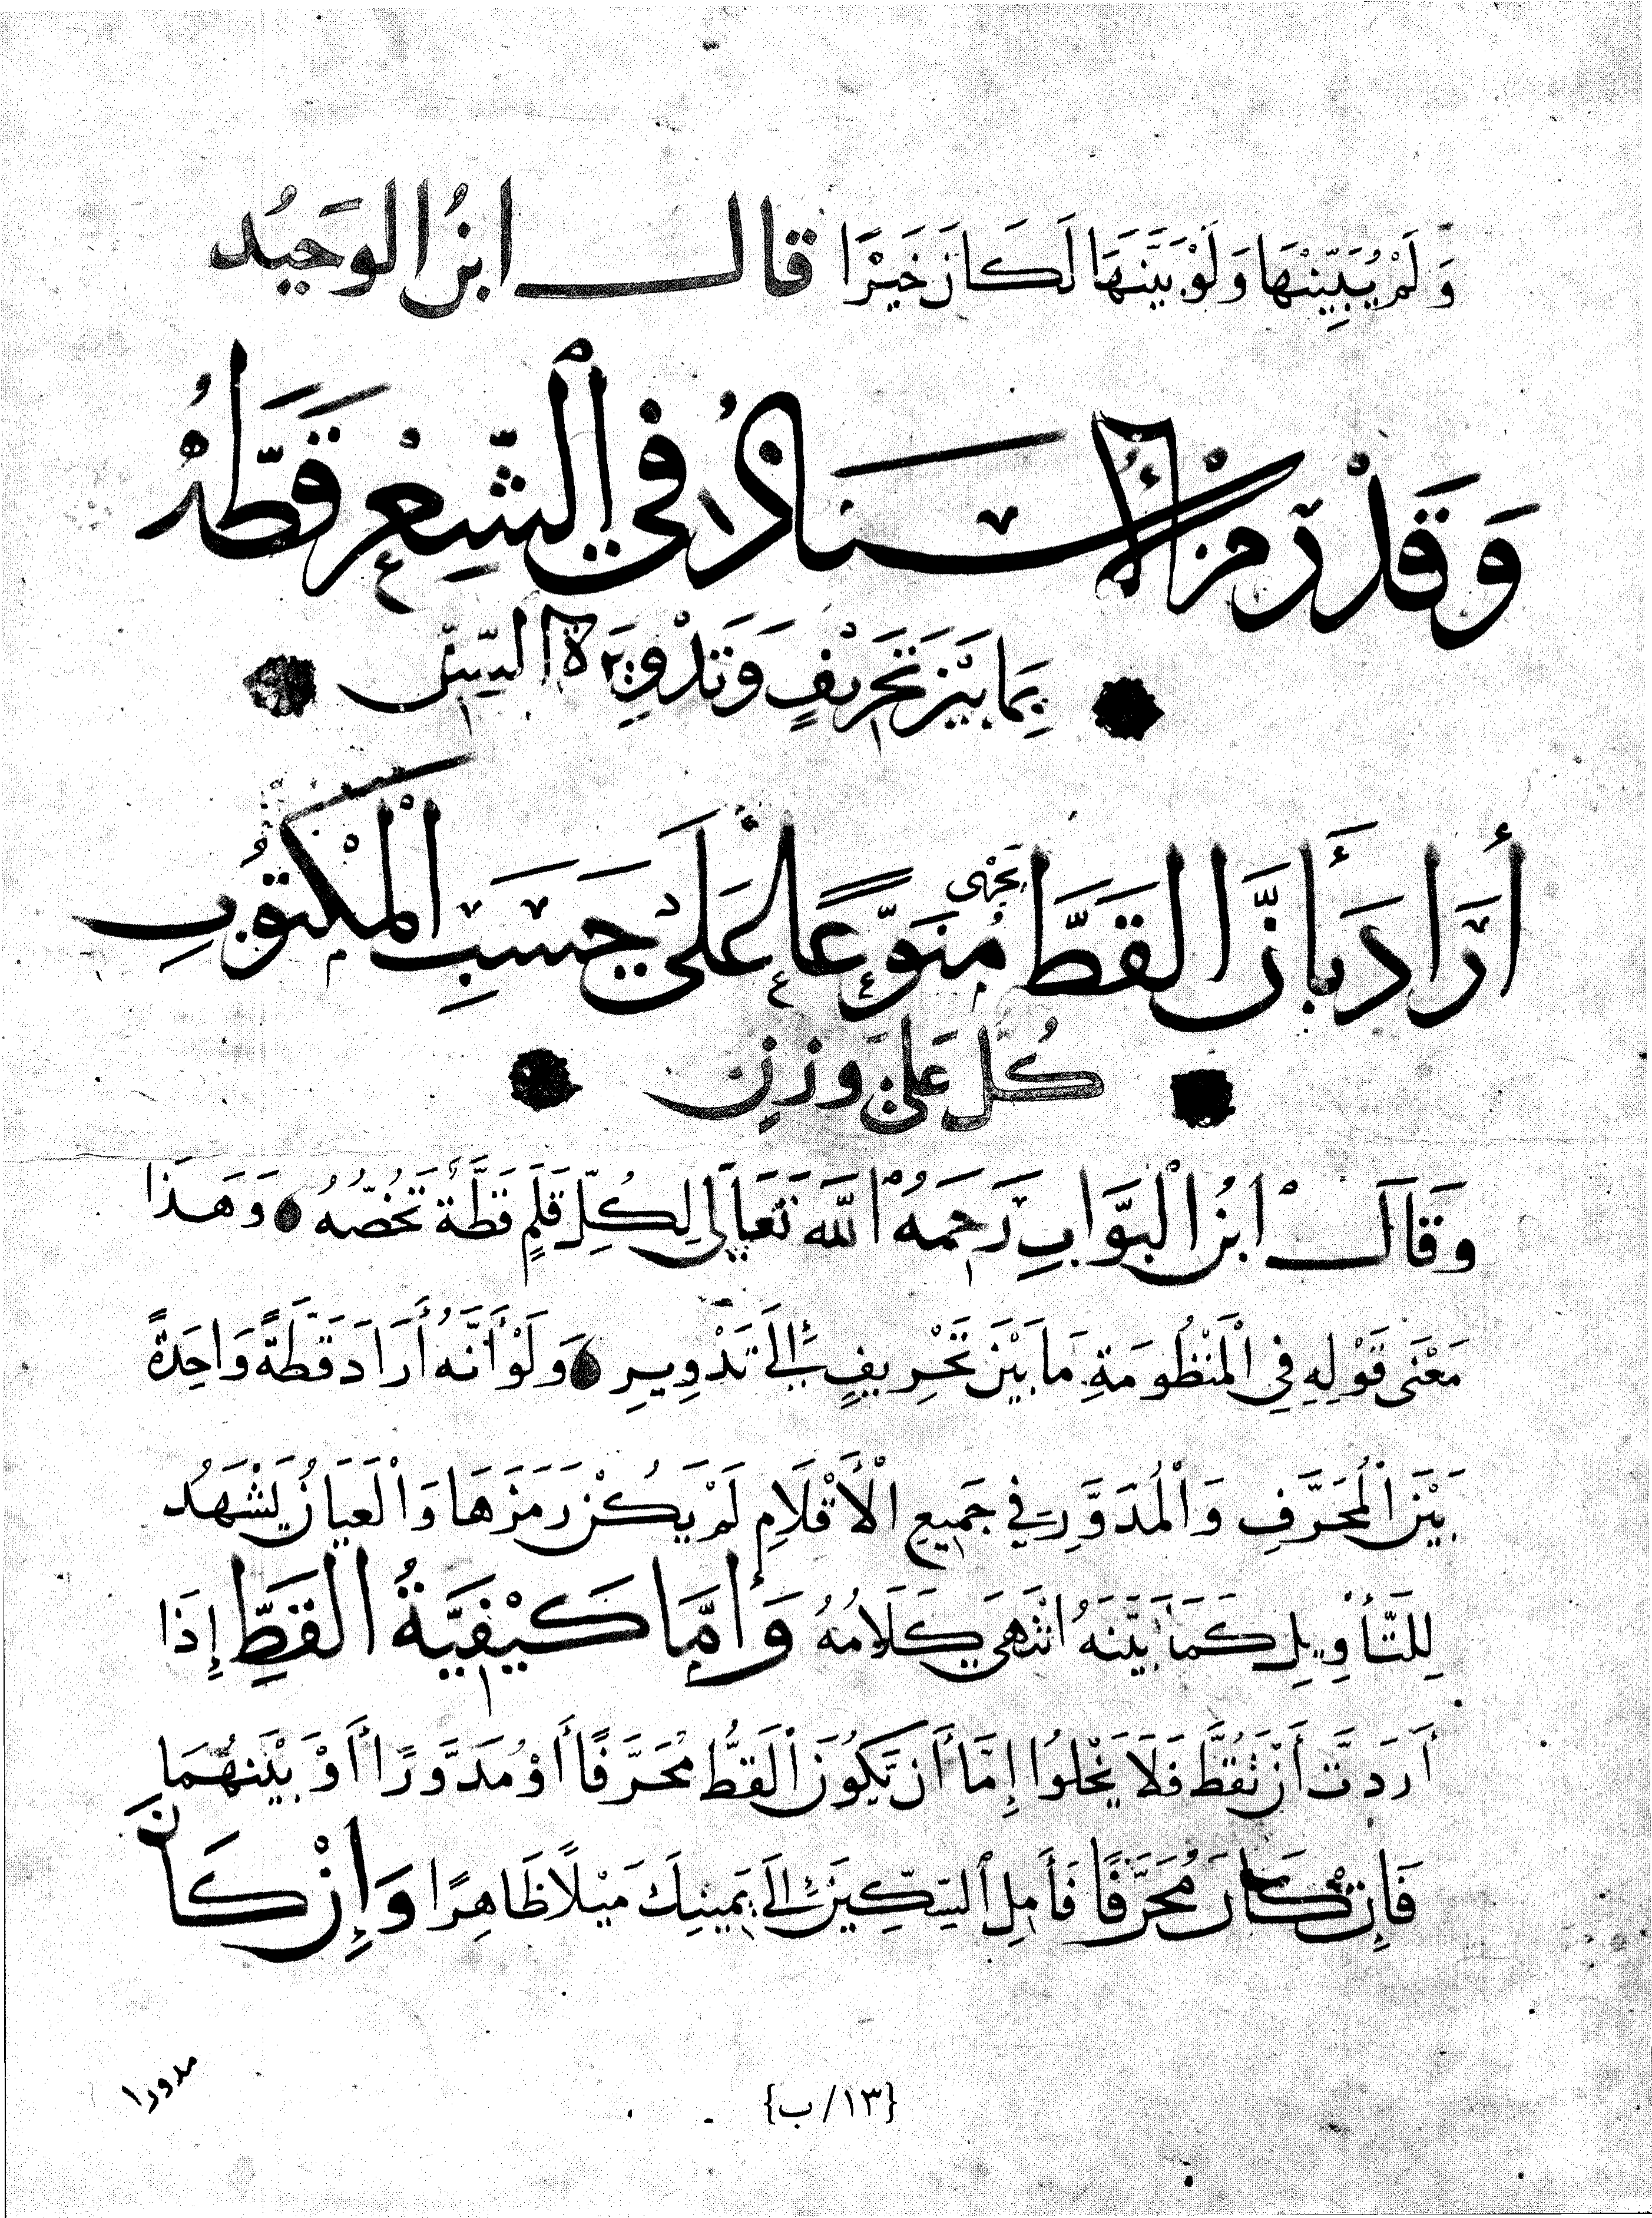 وَلَمْ يُبَيِّنْهَا وَلَوْ بَيَّنَهَا لَكَانَ خَيْرًا قَالَ ابْنُ الوَحِيْد
وَقَدْ رَمَزَ الأُسْتَاذُ فِي الشِّعْرِ قَطَّهُ
بِمَا بَيْنَ تَحْرِيْفٍ وَتَدْوِيْرَةِ السِّنِّ
أَرَادَ بِأَنَّ القَطَّ يَجْرِي مُنَوَّعًا عَلَى حَسَبِ الْمَكْتُوْبِ
كُلٌّ عَلَى وَزْنِ
وَقَالَ ابْنُ الْبَوَّابِ رَحِمَهُ اللَّه تَعَالَى لِكُلِّ قَلَمٍ قَطَّةٌ تَخُصُّهُ وَهَذَا
مَعْنَى قَوْلِهِ فِي الْمَنْظُومَةِ مَا بَيْنَ تَحْرِيفٍ إِلَى تَدْوِيرِ وَلَوْ أَنَّهُ أَرَادَ قَطَّةً وَاحِدَةً
بَيْنَ الْمُحَرَّفِ وَالْمُدَوَّرِ فِي جَمِيعِ الْأَقْلَامِ لَمْ يَكُنْ رَمَزَهَا وَالْعَيَانُ يَشْهَدُ
لِلتَّأْوِيلِ كَمَا بَيَّنَهُ انْتَهَى كَلَامُهُ وَأَمَّا كَيْفِيَّةُ القَطِّ إِذَا
أَرَدَتَّ أَنْ تَقُطَّ فَلَا يَخْلُوا إِمَّا أَنْ يَكُوْنَ الْقَطُّ مُحَرَّفًا أَوْ مُدَوَّرًا أَوْ بَيْنَهُمَا
فَإِنْ كَانَ مُحَرَّفًا فَأَمِلِ السِّكِّينَ إِلَى يَمِينِكَ مَيْلًا ظَاهِرًا وَإِنْ كَانَ
مدورا
{١٣/ب}